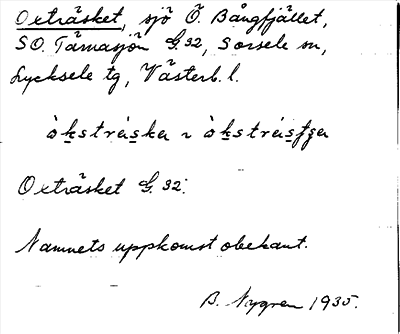 Oxträsket, sjö Ö. Bångfjället,
SO. Tärnasjön G. 32, Sorsele sn,
Lycksele tg, Västerb. l.
Oxträsket G. 32.
Namnets uppkomst obekant.
B. Nygren 1935.